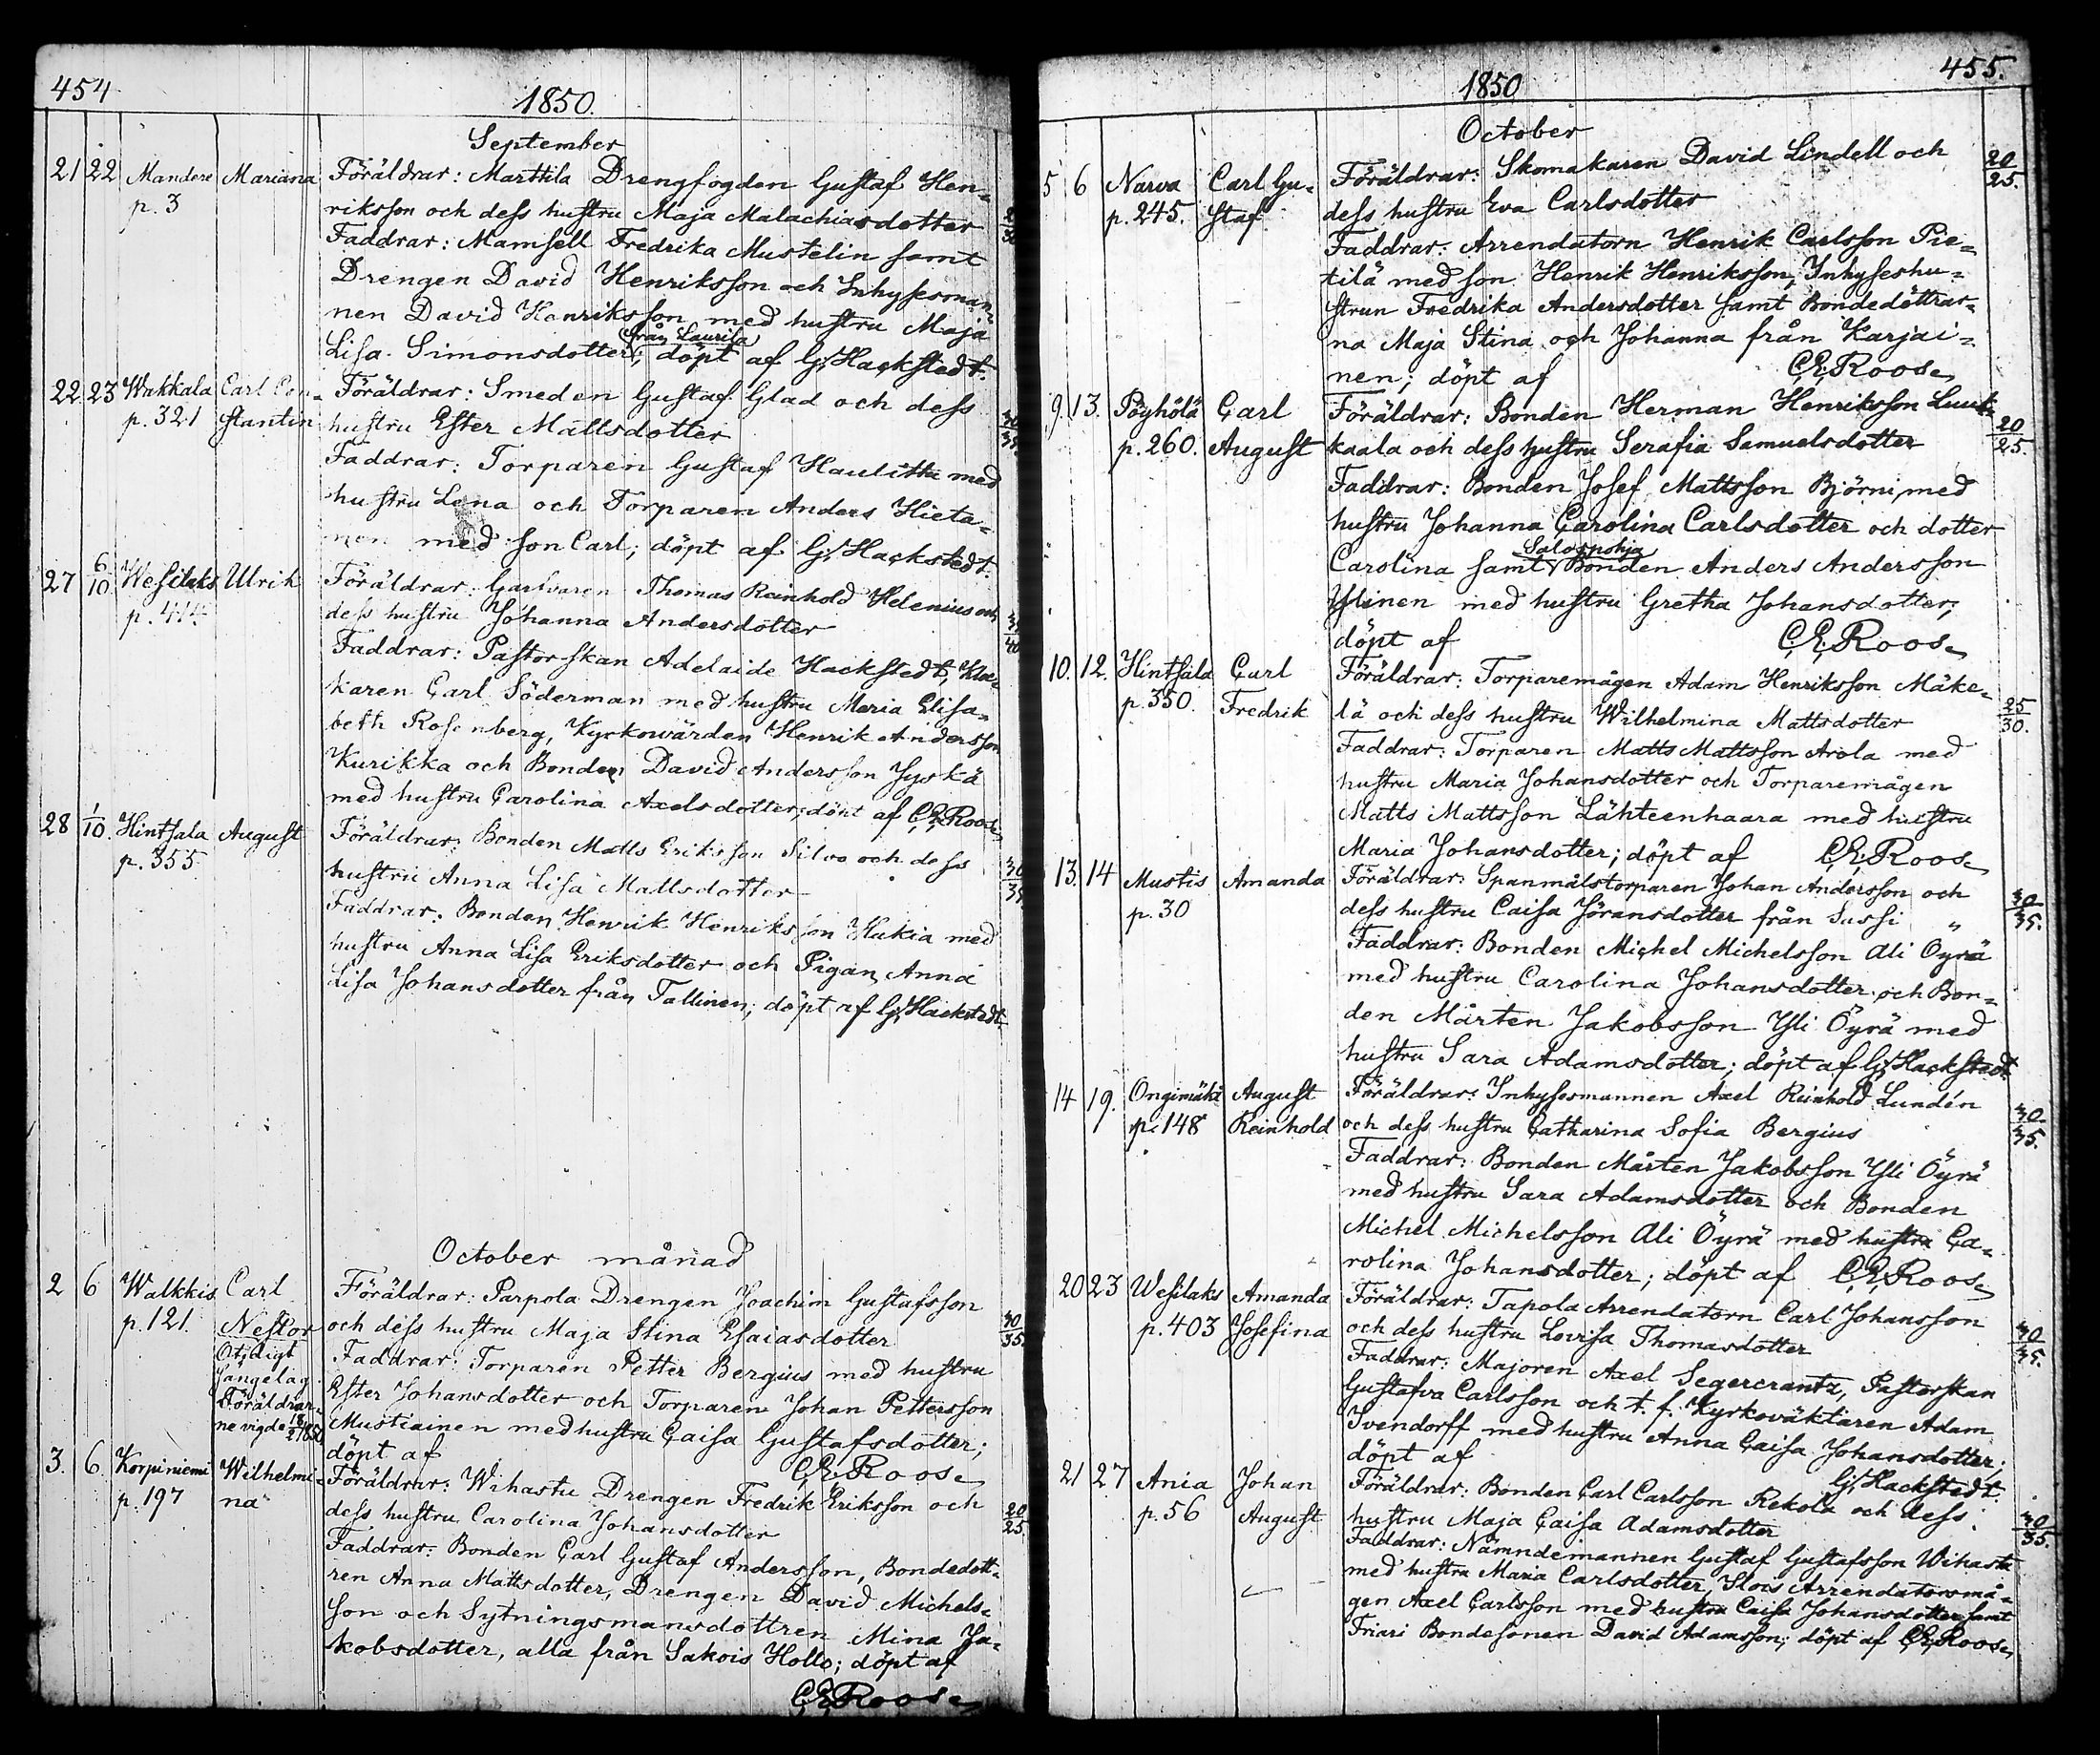 454
1850.
September
21 22 Mandere Mariana Föräldrar: Marttila Drengfogden Gustaf Hen-
p. 3 riksson och dess hustru Maja Malachiasdotter
Faddrar: Mamsell Fredrika Mustelin samt
Drengen David Henriksson och Inhysesman-
nen David Henriksson med hustru Maja
från Laurila
Lisa Simonsdotter; döpt af G. Hackstedt.
22 23 Wakkala Carl Con- Föräldrar: Smeden Gustaf Glad och dess
p. 321 stantin hustru Ester Mattsdotter
Faddrar: Torparen Gustaf Haulitta med
hustru Lena och Torparen Anders Hieta-
nen med son Carl; döpt af G. Hackstedt.
27 6/10 Wesilaks Ulrik Föräldrar: Garfvaren Thomas Reinhold Helenius och
dess hustru Johanna Andersdotter
Faddrar: Pastorskan Adelaide Hackstedt, Kloc-
karen Carl Söderman med hustru Maria Elisa-
beth Rosenberg, Kyrkowärden Henrik Andersson
Kurikka och Bonden David Andersson Jyskä
med hustru Carolina Axelsdotter; döpt af C.E. Roos.
28 1/10. Hintsala August Föräldrar: Bonden Matts Eriksson Silvo och dess
p. 355 hustru Anna Lisa Mattsdotter
Faddrar: Bonden Henrik Henriksson Hukia med
hustru Anna Lisa Eriksdotter och Pigan Anna
Lisa Johansdotter från Tallinen; döpt af G. Hackstedt
October månad
2 6 Walkkis Carl Föräldrar: Parpola Drengen Joachim Gustafsson 30
p. 121. Nestor och dess hustru Maja Stina Esaiasdotter 35.
Otidigt Faddrar: Torparen Petter Bergius med hustru
sängelag Ester Johansdotter och Torparen Johan Pettersson
Föräldrar-
ne vigde Mustiainen med hustru Caisa Gustafsdotter;
döpt af C.E. Roos.
3. 6. Korpiniemi Wilhelmi- Föräldrar: Wihastu Drengen Fredrik Eriksson och 20
p. 197 na dess hustru Carolina Johansdotter 25.
Faddrar: Bonden Carl Gustaf Andersson, Bondedott-
ren Anna Mattsdotter, Drengen David Michels-
son och Sytningsmansdottren Mina Ja-
kobsdotter, alla från Sakois Hollo; döpt af
C.E. Roos.
455.
1850
October
5 6 Narva Carl Gu- Föräldrar: Skomakaren David Lindell och 20
p. 245. staf dess hustru Eva Carlsdotter 25.
Faddrar: Arrendatorn Henrik Carlsson Pie-
tilä med son Henrik Henriksson, Inhyseshu-
strun Fredrika Andersdotter samt Bondedöttrar-
na Maja Stina och Johanna från Karjai-
nen; döpt af C.E. Roos.
9. 13. Pöyhölä Carl Föräldrar: Bonden Herman Henriksson Luuk- 20
p. 260. August kaala och dess hustru Serafia Samuelsdotter 25.
Faddrar: Bonden Josef Mattsson Björni med
hustru Johanna Carolina Carlsdotter och dotter
Salospohja
Carolina samt Bonden Anders Andersson
Ylinen med hustru Gretha Johansdotter;
döpt af C.E. Roos.
10. 12. Hintsala Carl Föräldrar: Torparemågen Adam Henriksson Mäke- 25
p. 350. Fredrik lä och dess hustru Wilhelmina Mattsdotter 30.
Faddrar: Torparen Matts Mattsson Arola med
hustru Maria Johansdotter och Torparemågen
Matts Mattsson Lähteenhaara med hustru
Maria Johansdotter; döpt af C.E. Roos.
13. 14 Mustis Amanda Föräldrar: Spanmålstorparen Johan Andersson och 30
p. 30 dess hustru Caisa Jöransdotter från Sussi 35.
Faddrar: Bonden Michel Michelsson Ali Öyrä
med hustru Carolina Johansdotter och Bon-
den Mårten Jakobsson Yli Öyrä med
hustru Sara Adamsdotter; döpt af G. Hackstedt
14 19. Ongimäki August Föräldrar: Inhysesmannen Axel Reinhold Lundén 30
p. 148 Reinhold och dess hustru Catharina Sofia Bergius 35.
Faddrar: Bonden Mårten Jakobsson Yli Öyrä
med hustru Sara Adamsdotter och Bonden
Michel Michelsson Ali Öyrä med hustru Ca-
rolina Johansdotter; döpt af C.E. Roos.
20 23 Wesilaks Amanda Föräldrar: Tapola Arrendatorn Carl Johansson 30
p. 403 Josefina och dess hustru Lovisa Thomasdotter 35.
Faddrar: Majoren Axel Segercrantz, Pastorskan
Gustafva Carlsson och t. f. Kyrkoväktaren Adam
Svendorff med hustru Anna Caisa Johansdotter;
döpt af G. Hackstedt.
21 27 Ania Johan Föräldrar: Bonden Carl Carlsson Rekola och dess 30
p. 56 August hustru Maja Caisa Adamsdotter 35.
Faddrar: Nämndemannen Gustaf Gustafsson Wihastu
med hustru Maria Carlsdotter, Slois Arrendatorsmå-
gen Axel Carlsson med hustru Caisa Johansdotter samt
Friari Bondesonen David Adamsson; döpt af C.E. Roos.